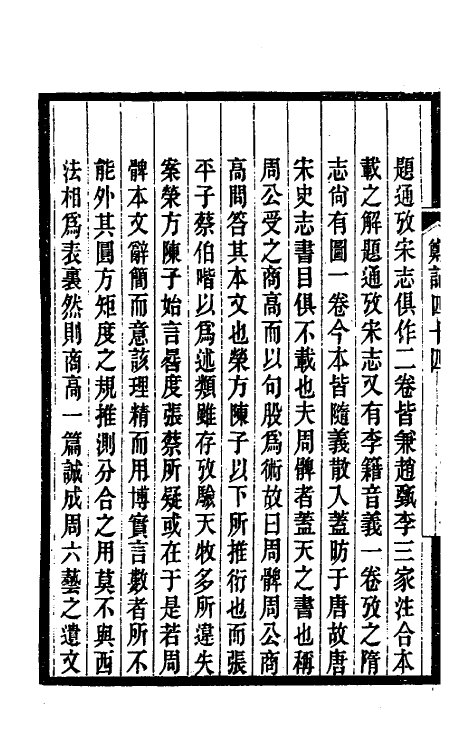 鄭記四十四
題通攷宋志俱作二卷皆兼趙甄李三家注合本
載之解題通攷宋志又有李籍音義一卷攷之隋
志尙有圖一卷今本皆隨義散入蓋昉于唐故唐
宋史志書目俱不載也夫周髀者蓋天之書也稱
周公受之商高而以句股爲術故曰周髀周公商
高問答其本文也榮方陳子以下所推衍也而張
平子蔡伯喈以爲述類雖存攷驗天牧多所違失
案榮方陳子始言晷度張蔡所疑或在于是若周
髀本文辭簡而意該理精而用博實言數者所不
能外其圓方矩度之規推測分合之用莫不與西
法相爲表裏然則商高一篇誠成周六藝之遺文